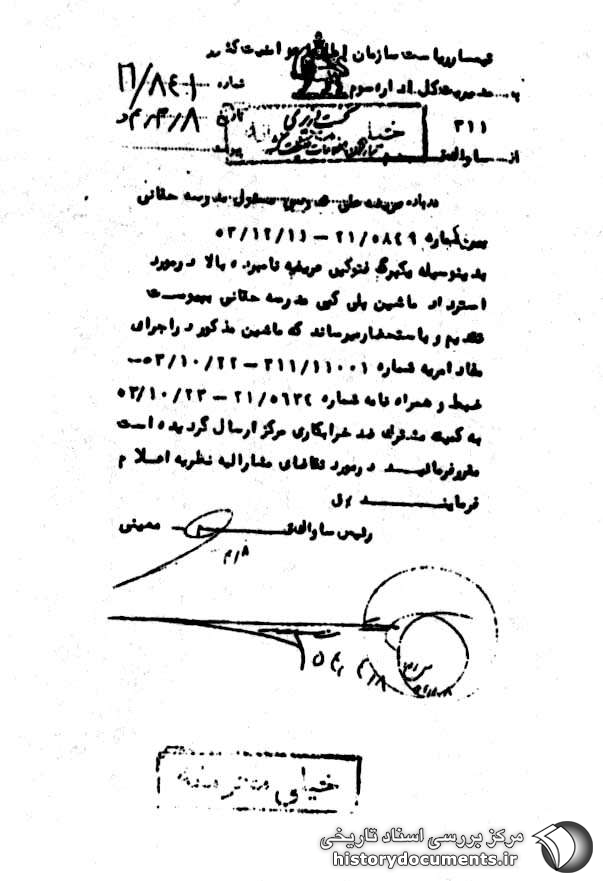 تیمسار ریاست سازمان اطلاعات و امنیت کشور
به مدیریت کل اداره سوم ۳۱۱
از ساواک قم
شماره ۲۱/۸۴۱
تاریخ
پیوست
خیلی محرمانه
درباره علی مسئول مدرسه حقانی
شماره ۲۱/۵۸۴۹ – ۵۳/۱۲/۱۱
بدینوسیله یکبرگ فتوکپی عریضه نامبرده بالا در مورد
استرداد ماشین پلی کپی مدرسه حقانی بپیوست
تقدیم و باستحضار میرساند که ماشین مذکور در اجرای
مفاد امریه شماره ۳۱۱/۱۱۰۰۱ – ۵۳/۱۰/۲۲
ضبط و همراه نامه شماره ۲۱/۵۶۳۴ – ۵۳/۱۰/۲۳
به کمیته مشترک ضد خرابکاری مرکز ارسال گردیده است
مقرر فرمائید در مورد تقاضای مشارالیه نظریه اعلام
فرمایند
رئیس ساواک قم – معینی
خیلی محرمانه
مرکز بررسی اسناد تاریخی
historydocuments.ir